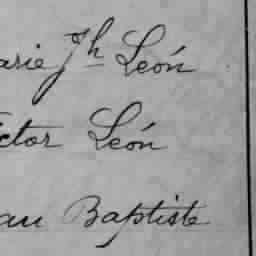 arie Jh León
ctor León
au Baptiste